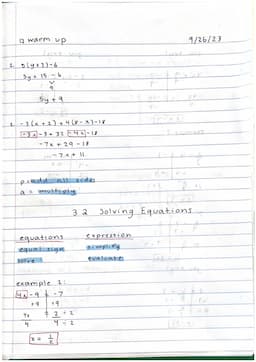 warm up 9/26/23
1. 5(y+3)-6
5y + 15 - 6
9
5y + 9
2. -3(x+2)+4(8-x)-18
-7x + 29 - 18
-7x + 11
p = add all sides
a = multiply
3.2 Solving Equations
equations expression
equal sign simplify
solve evaluate
example 1:
4x - 9 = -7
+9 +9
4x = 2 ÷ 2
4 4 ÷ 2
x = 1/2